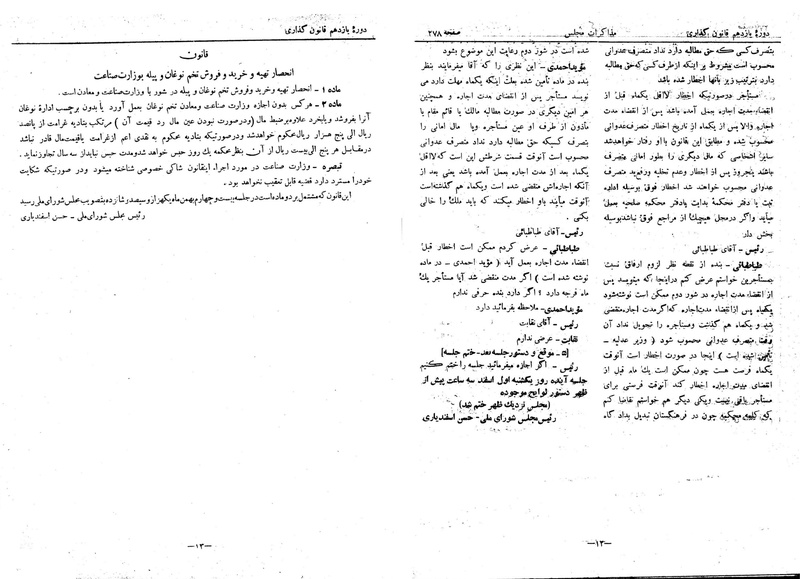 دورهٔ یازدهم قانون گذاری
مذاکرات مجلس
صفحه ۲۷۸
بتصرف کسی که حق مطالبه دارد نداد متصرف عدوانی
محسوب است مشروط بر اینکه از طرف کسی که حق مطالبه
دارد بترتیب زیر باو اخطار شده باشد
مستأجر در صورتیکه اخطار لااقل یکماه قبل از
انقضاء مدت اجاره بعمل آمده باشد پس از انقضاء مدت
اجاره والا پس از یکماه از تاریخ اخطار متصرف عدوانی
محسوب شده و مطابق این قانون با او رفتار خواهد شد
سایر اشخاصی که مال دیگری را بطور امانی متصرف
باشند پنجروز پس از اخطار و عدم تخلیه و رفع ید متصرف
عدوانی محسوب خواهند شد اخطار فوق بوسیله اداره
ثبت یا دفتر محکمه بدایت یا دفتر محکمه صلحیه بعمل
میآید واگر در محل هیچیک از مراجع فوق نباشد بوسیله
بخش دار
رئیس - آقای طباطبائی
طباطبائی - بنده از نقطه نظر لزوم ارفاق نسبت
بمستأجرین خواستم عرض کنم در اینجا که مینویسد پس
از انقضاء مدت اجاره در شور دوم ممکن است نوشته شود
یکماه پس از انقضاء مدت اجاره که اگر مدت اجاره منقضی
شد و یکماه هم گذشت ومستأجره را تحویل نداد آن
وقت متصرف عدوانی محسوب شود ( وزیر عدلیه -
تأمین شده است ) اینجا در صورت اخطار است آنوقت
یکماه فرصت هست چون ممکن است یک ماه قبل از
انقضای مدت اجاره اخطار کند آنوقت فرصتی برای
مستأجر باقی نیست ویکی دیگر هم خواستم تقاضا کنم
که کلمه محکمه چون در فرهنگستان تبدیل بداد گاه
شده است در شور دوم رعایت این موضوع بشود
مؤید احمدی - این نظری را که آقا میفرمایند بنظر
بنده در ماده تأمین شده بعلت اینکه یکماه مهلت می
نویسد مستأجر پس از انقضای مدت اجاره و همچنین
هر امین دیگری در صورت مطالبه مالک یا قائم مقام یا
مأذون از طرف او عین مستأجره ویا مال امانی را
بتصرف کسیکه حق مطالبه دارد نداد متصرف عدوانی
محسوب است آنوقت قسمت شرطش این است که لااقل
یکماه بعد از مدت اجاره بعمل آمده باشد یعنی بعد از
آنکه اجاره‌اش منقضی شده است ویکماه هم گذشته است
آنوقت میآیند باو اخطار میکنند که باید ملک را خالی
بکنی .
رئیس - آقای طباطبائی
طباطبائی - عرض کردم ممکن است اخطار قبل
انقضاء مدت اجاره بعمل آید ( مؤید احمدی - در ماده
نوشته شده است ) اگر مدت منقضی شد آیا مستأجر یک
ماه فرجه دارد ؟ اگر دارد بنده حرفی ندارم
مؤید احمدی - ملاحظه بفرمائید دارد
رئیس - آقای نقابت
نقابت - عرضی ندارم
[۵ - موقع و دستور جلسه بعد - ختم جلسه]
رئیس - اگر اجازه میفرمائید جلسه را ختم کنیم
جلسه آینده روز یکشنبه اول اسفند سه ساعت پیش از
ظهر دستور لوایح موجوده
(مجلس نزدیک ظهر ختم شد)
رئیس مجلس شورای ملی - حسن اسفندیاری
—۱۳—
دورهٔ یازدهم قانون گذاری
قانون
انحصار تهیه و خرید و فروش تخم نوغان و پیله بوزارت صناعت
ماده ۱ - انحصار تهیه و خرید وفروش تخم نوغان و پیله در شور با وزارت صناعت و معادن است .
ماده ۲ - هر کس بدون اجازه وزارت صناعت ومعادن تخم نوغان بعمل آورد یا بدون برچسب ادارهٔ نوغان
آنرا بفروشد ویابخرد علاوه بر ضبط مال (ودرصورت نبودن عین مال رد قیمت آن ) مرتکب بتادیه غرامت از پانصد
ریال الی پنج هزار ریال محکوم خواهد شد ودرصورتیکه بتادیه محکوم به نقدی اعم از غرامت یا قیمت مال قادر نباشد
در مقابل هر پنج الی بیست ریال از آن بنظر محکمه یک روز حبس خواهد شد ومدت حبس نباید از سه سال تجاوز نماید .
تبصره - وزارت صناعت در مورد اجراء اینقانون شاکی خصوصی شناخته میشود ودر صورتیکه شکایت
خودرا مسترد دارد قضیه قابل تعقیب نخواهد بود .
این قانون که مشتمل بر دو ماده است در جلسه بیست و چهارم بهمن ماه یکهزار و سیصد و شانزده بتصویب مجلس شورای ملی رسید
رئیس مجلس شورای ملی - حسن اسفندیاری
—۱۳—